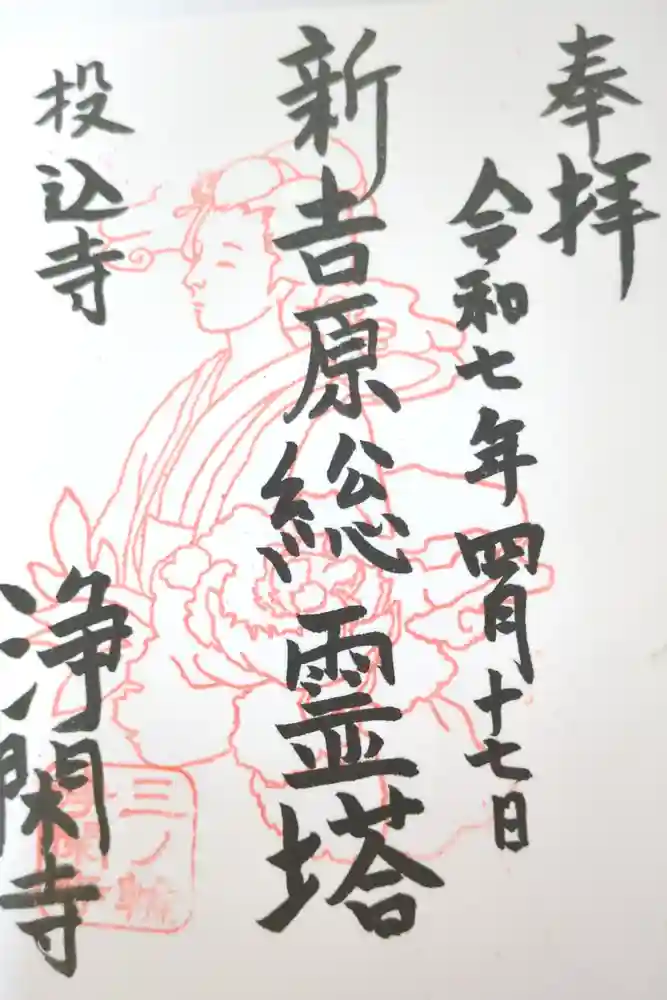 奉拝
令和七年四月十七日
新吉原総霊塔
投込寺
浄閑寺
三ノ輪